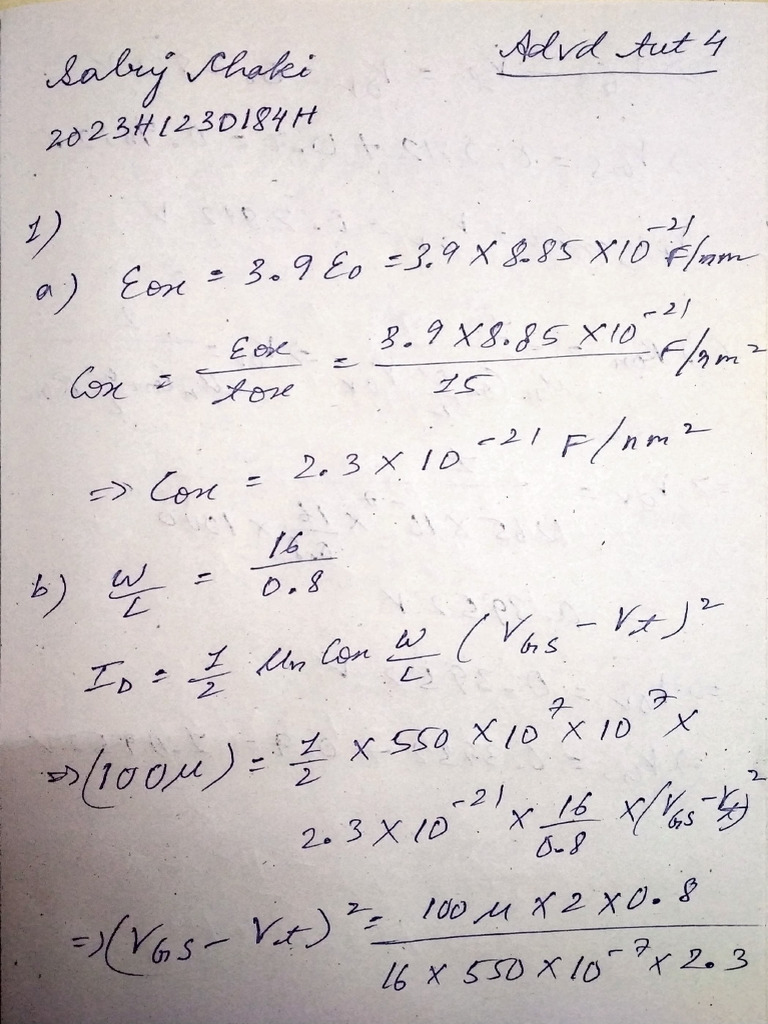 Advd tut 4
2023H1230184H
1)
a) εox = 3.9 ε0 = 3.9 × 8.85 × 10^-21 F/nm
Cox = εox/tox = 3.9 × 8.85 × 10^-21/15 F/nm^2
=> Cox = 2.3 × 10^-21 F/nm^2
b) W/L = 16/0.8
ID = 1/2 μn Cox W/L (VGS - Vt)^2
=> (100μ) = 1/2 × 550 × 10^7 × 10^7 ×
2.3 × 10^-21 × 16/0.8 × (VGS - Vt)^2
=> (VGS - Vt)^2 = 100μ × 2 × 0.8/16 × 550 × 10^-7 × 2.3